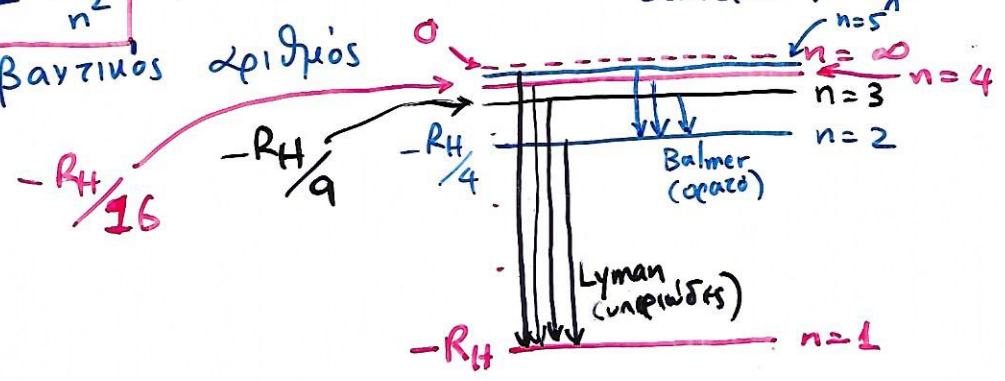 n²
n=5
0
n=∞
βαντικός αριθμός
n=4
n=3
-RH/16
-RH/9
-RH/4
n=2
Balmer
(ορατό)
Lyman
(υπεριώδες)
-RH
n=1